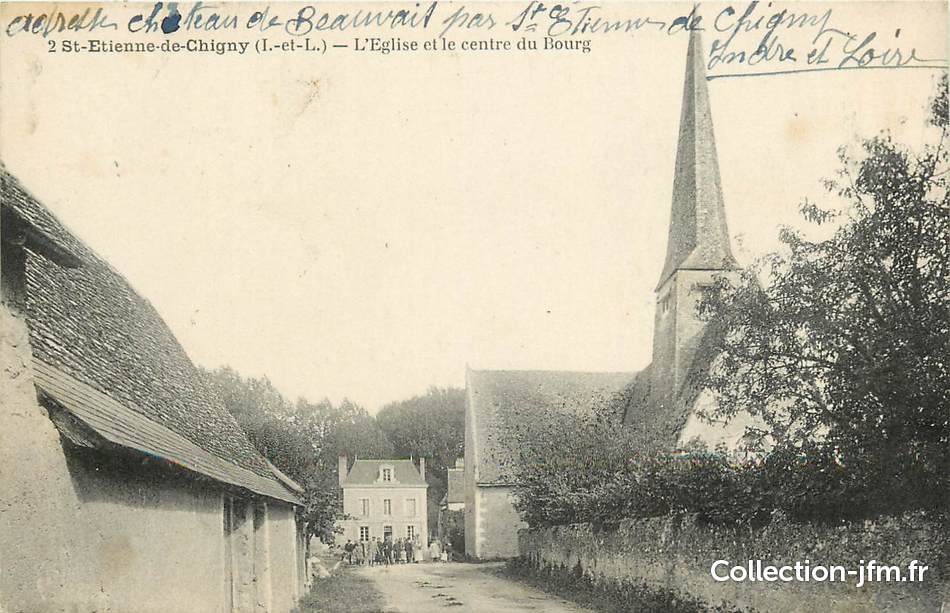 adresse château de Beauvait par St Etienne de Chigny
Indre et Loire
2 St-Etienne-de-Chigny (I.-et-L.) — L'Eglise et le centre du Bourg
Collection-jfm.fr